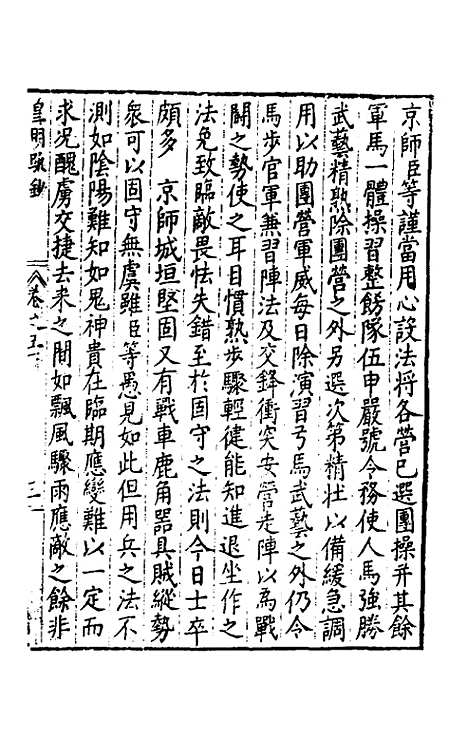 京師臣等謹當用心設法將各營已選團操并其餘
軍馬一體操習整飭隊伍申嚴號令務使人馬強勝
武藝精熟除團營之外另選次第精壯以備緩急調
用以助團營軍威每日除演習弓馬武藝之外仍令
馬步官軍兼習陣法及交鋒衝突安營走陣以為戰
鬪之勢使之耳目慣熟步驟輕健能知進退坐作之
法免致臨敵畏怯失錯至於固守之法則今日士卒
頗多　京師城垣堅固又有戰車鹿角器具賊縱勢
衆可以固守無虞雖臣等愚見如此但用兵之法不
測如陰陽難知如鬼神貴在臨期應變難以一定而
求况醜虜交捷去来之間如飄風驟雨應敵之餘非
皇明疏鈔　卷之五十　三